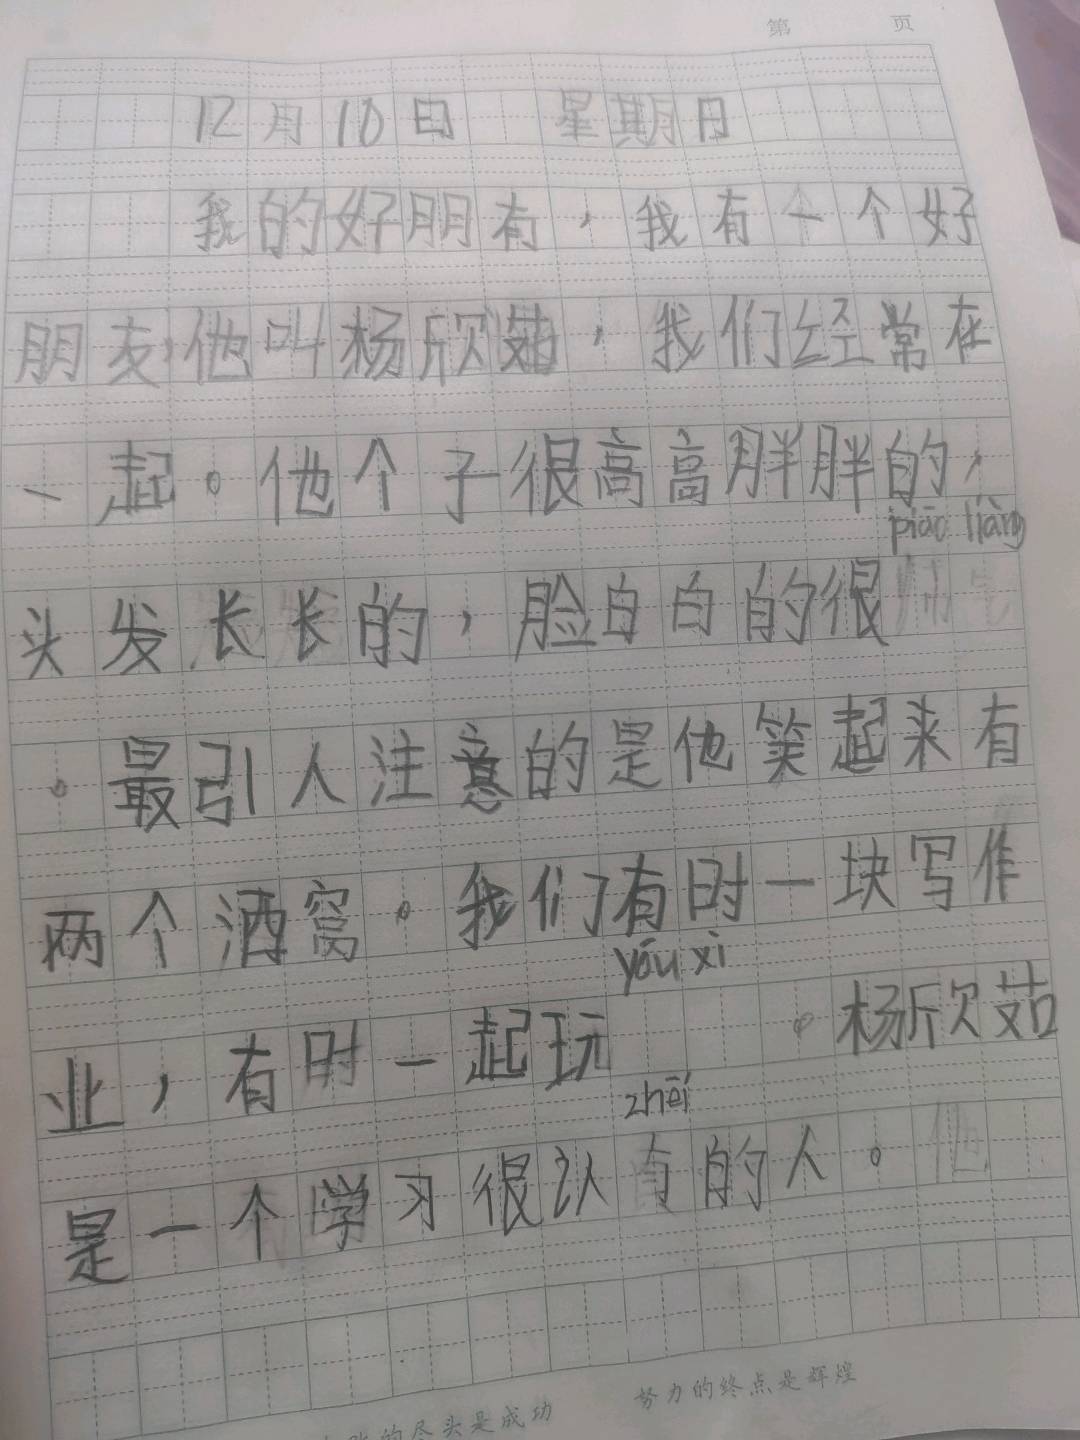 第 页
12月10日 星期日
我的好朋有，我有一个好
朋友，他叫杨欣茹，我们经常在
一起。他个子很高高胖胖的，
piāo liàng
头发长长的，脸白白的很
。最引人注意的是他笑起来有
两个酒窝。我们有时一块写作
yóu xì
业，有时一起玩 。杨欣茹
zhēi
是一个学习很认 的人。他
的尽头是成功 努力的终点是辉煌